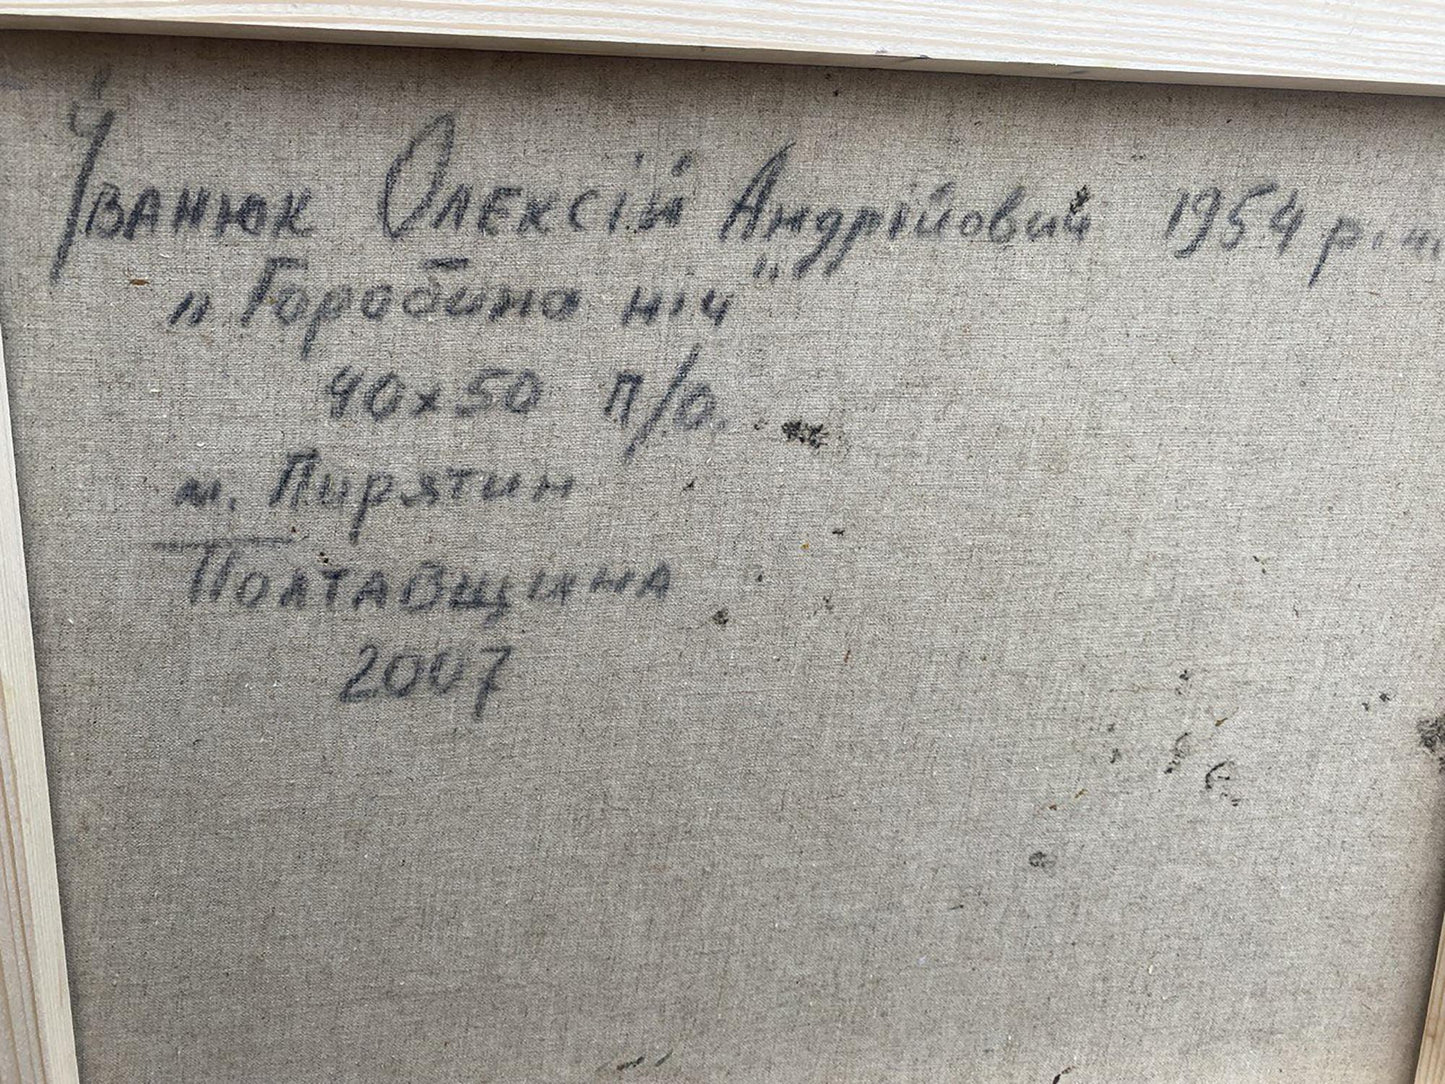 Іванюк Олексій Андрійович 1954 р.н.
„Горобина ніч"
40х50 П/О.
м. Пирятин
Полтавщина
2007